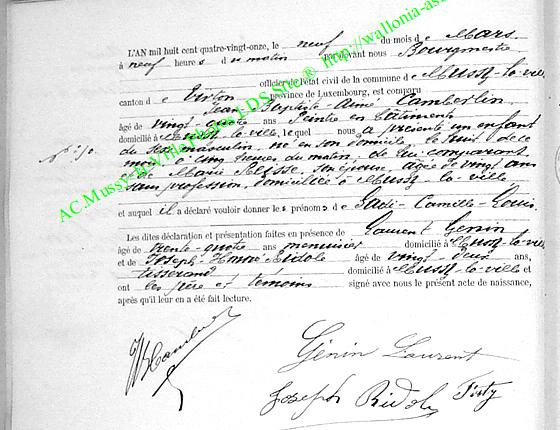 L'AN mil huit cent quatre-vingt-onze, le neuf du mois de Mars
à neuf heures du matin par devant nous Bourgmestre
officier de l'état civil de la commune de Mussy-la-ville
canton de Virton province de Luxembourg, est comparu
Jean-Baptiste-Aimé Camberlin
âgé de vingt-quatre ans Peintre en bâtiments
domicilié à Mussy-la-ville, lequel nous a présenté un enfant
du sexe masculin né en son domicile, le huit de ce
mois à cinq heures du matin, de lui comparant
et de Marie son épouse, âgée de vingt ans
sans profession, domiciliée à Mussy-la-ville
et auquel il a déclaré vouloir donner les prénoms de Sadi-Camille-Louis
Les dites déclaration et présentation faites en présence de Laurent Génin
âgé de trente-quatre ans menuisier domicilié à Mussy-la-ville
et de Joseph-Honoré Ridole âgé de vingt-deux ans,
tisserand domicilié à Mussy-la-ville et
ont les père et témoins signé avec nous le présent acte de naissance,
après qu'il leur en a été fait lecture.
AC.Mussy-la-Ville Photos J-D.S Site@ http://wallonia-as
Génin Laurent
Joseph Ridole